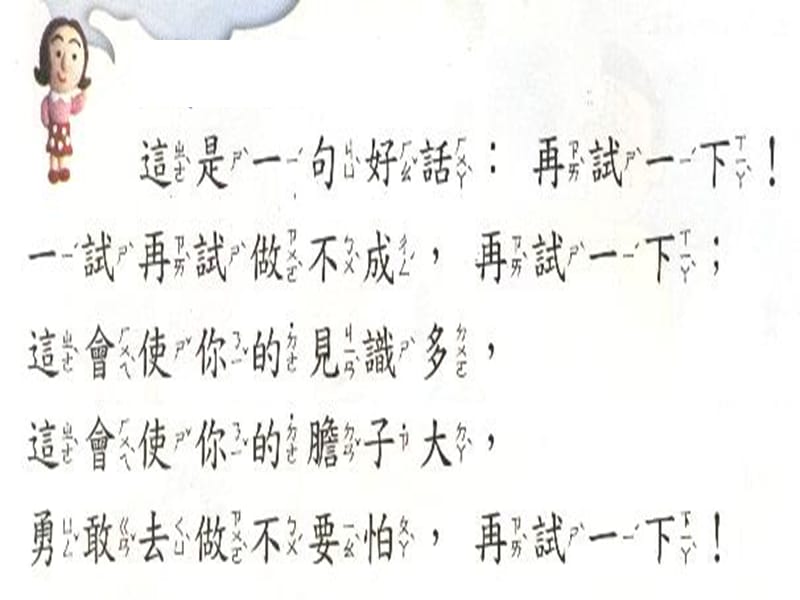 這是一句好話：再試一下！
一試再試做不成，再試一下；
這會使你的見識多，
這會使你的膽子大，
勇敢去做不要怕，再試一下！